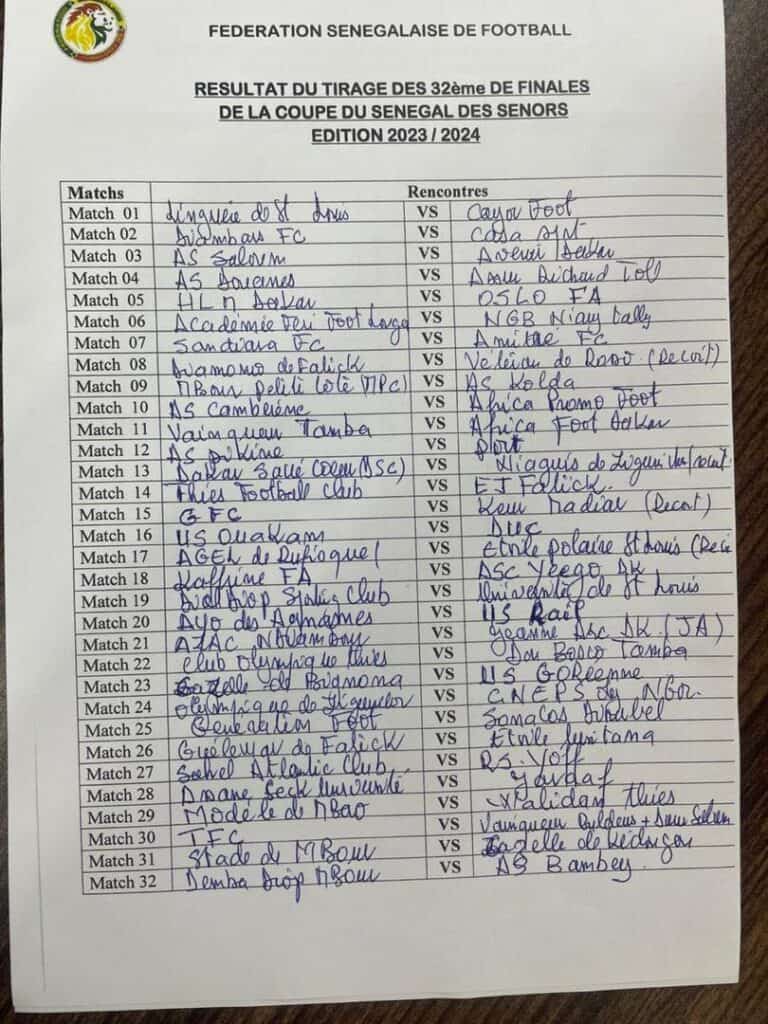 FEDERATION SENEGALAISE DE FOOTBALL
RESULTAT DU TIRAGE DES 32ème DE FINALES
DE LA COUPE DU SENEGAL DES SENORS
EDITION 2023 / 2024
Matchs Rencontres
Match 01 Linguère de St Louis VS Cayor Foot
Match 02 Diambars FC VS Casa
Match 03 AS Saloum VS Avenir Dakar
Match 04 AS Douanes VS Richard Toll
Match 05 HLM Dakar VS OSLO FA
Match 06 Académie Foot VS NGB Niary tally
Match 07 Sandiara FC VS Amitié FC
Match 08 Diamono de Fatick VS de Rosso (Reçoit)
Match 09 MBour Petite Côte (MPC) VS AS Kolda
Match 10 AS Cambérène VS Africa Promo Foot
Match 11 Vainqueur Tamba VS Africa Foot Dakar
Match 12 AS Pikine VS Port
Match 13 Dakar Sacré Coeur (DSC) VS Niaguis de
Match 14 Thies Football Club VS EJ Fatick
Match 15 GFC VS Keur Madiar (Recoit)
Match 16 US Ouakam VS Duc
Match 17 AGEL de Rufisque VS Etoile Polaire St Louis
Match 18 Kaffrine FA VS ASC Yeego DK
Match 19 Club VS Université de St Louis
Match 20 VS US Rail
Match 21 AJAC VS Jeanne D'Asc DK (JA)
Match 22 Club Olympique Thies VS Don Bosco Tamba
Match 23 de VS US GOReenne
Match 24 Olympique de VS CNEPS de NGor
Match 25 Génération Foot VS Sonacos Diourbel
Match 26 Guélewar de Fatick VS Etoile Lusitana
Match 27 Sahel Atlantic Club VS RS Yoff
Match 28 Seck VS Jaraaf
Match 29 Modèle de MBao VS Thies
Match 30 TFC VS Vainqueur
Match 31 Stade de MBour VS Gazelle de
Match 32 Demba Diop MBour VS AS Bambey